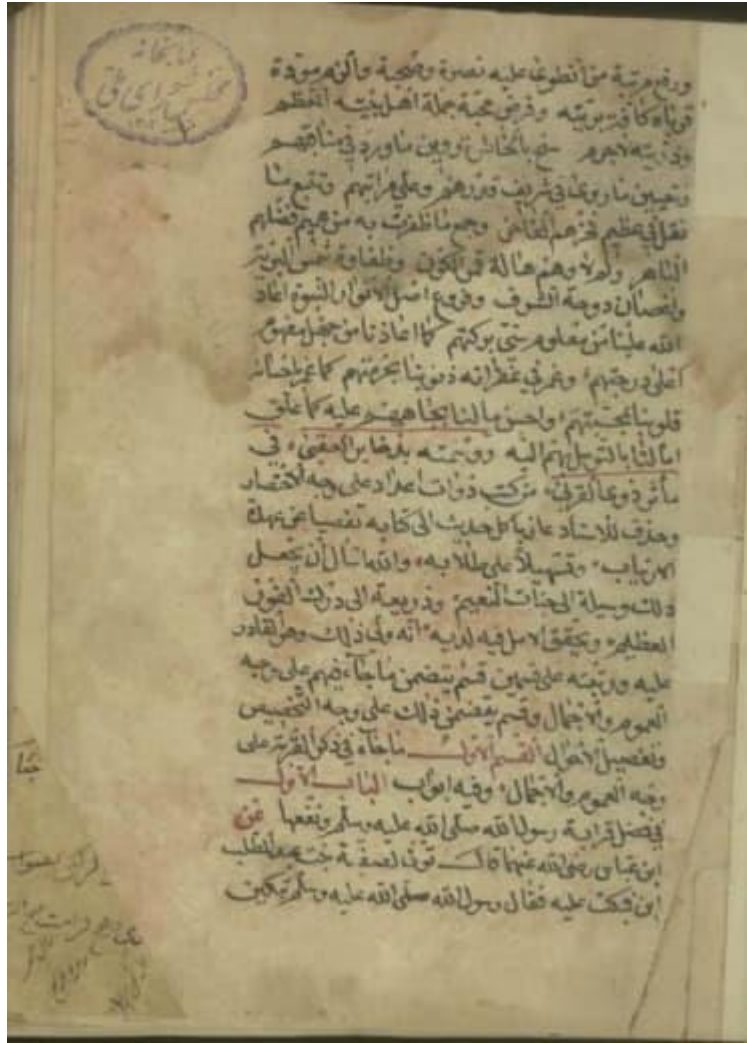 ورفع مرتبة من انطوى عليه نصرة وصحبة والزم مودة
قرباه كافة بريته وفرض محبة جملة اهل بيته المعظم
وذريته
نقل في عظيم فخرهم الفاخر وجمع ما ظفرت به من عميم فضلهم
الباهر ولم لا وهم هالة قمر الكون وطفاوة شمس البرية
واغصان دوحة الشرف وفروع اصل الانوار النبوة اعاد
الله علينا من معلوم سني بركتهم كما اعاذنا من جهل مفهوم
اعلى درجتهم وغمر في غفرانه ذنوبنا بحرمتهم كما غمر باحسانه
قلوبنا بمحبتهم واحسن مآلنا بجاههم عليه كما علق
آمالنا بالتوسل بهم اليه ووسمته بذخاير العقبى في
مآثر ذوي القربى من كتب ذوات اعداد على وجه الاختصار
وحذف للاسناد عازيا كل حديث الى كتابه تفصيا عن عهدة
الارتياب وتسهيلا على طلابه والله اسأل أن يجعل
ذلك وسيلة الى جنات النعيم وذريعة الى درك الفوز
العظيم ويحقق الامل فيه لديه انه ولي ذلك وهو القادر
عليه ورتبته على قسمين قسم يتضمن ما جاء فيهم على وجه
العموم والاجمال وقسم يتضمن ذلك على وجه التخصيص
وتفصيل الاحوال القسم الاول ما جاء في ذكر القرابة على
وجه العموم والاجمال وفيه ابواب الباب الاول
في فضل قرابة رسول الله صلى الله عليه وسلم ونفعها عن
ابن عباس رضي الله عنهما قال توفي لصفية بنت عبد المطلب
ابن فبكت عليه فقال رسول الله صلى الله عليه وسلم تبكين
كتابخانه
مجلس شورای ملی